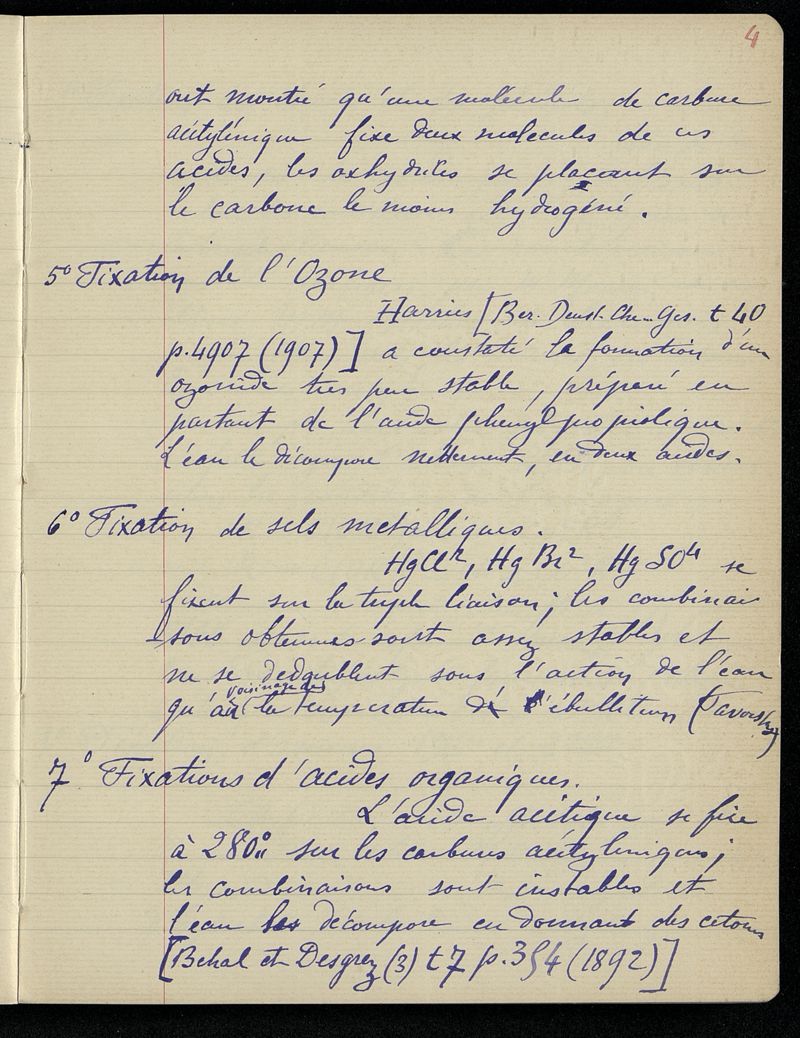 4
ont montré qu'une molécule de carbure
acétylénique fixe deux molecules de ces
acides, les oxhydriles se placant sur
le carbone le moins hydrogéné.
5° Fixation de l'Ozone
Harries [Ber. Deust. Che.. Ges. t 40
p. 4907 (1907)] a constaté la formation d'un
ozonide tres peu stable, préparé en
partant de l'acide phenylpropiolique.
L'eau le décompose nettement, en deux acides.
6° Fixation de sels metalliques.
HgCl², HgBr², HgSO⁴ se
fixent sur la triple liaison; les combinai
-sons obtenues sont assez stables et
ne se dedoublent sous l'action de l'eau
voisinage de
qu'au la temperature d'ébullition (Favorsky)
7° Fixations d'acides organiques.
L'acide acétique se fixe
à 280° sur les carbures acétyleniques;
les combinaisons sont instables et
l'eau les décompose en donnant des cetones
[Behal et Desgrez (3) t 7 p. 354 (1892)]